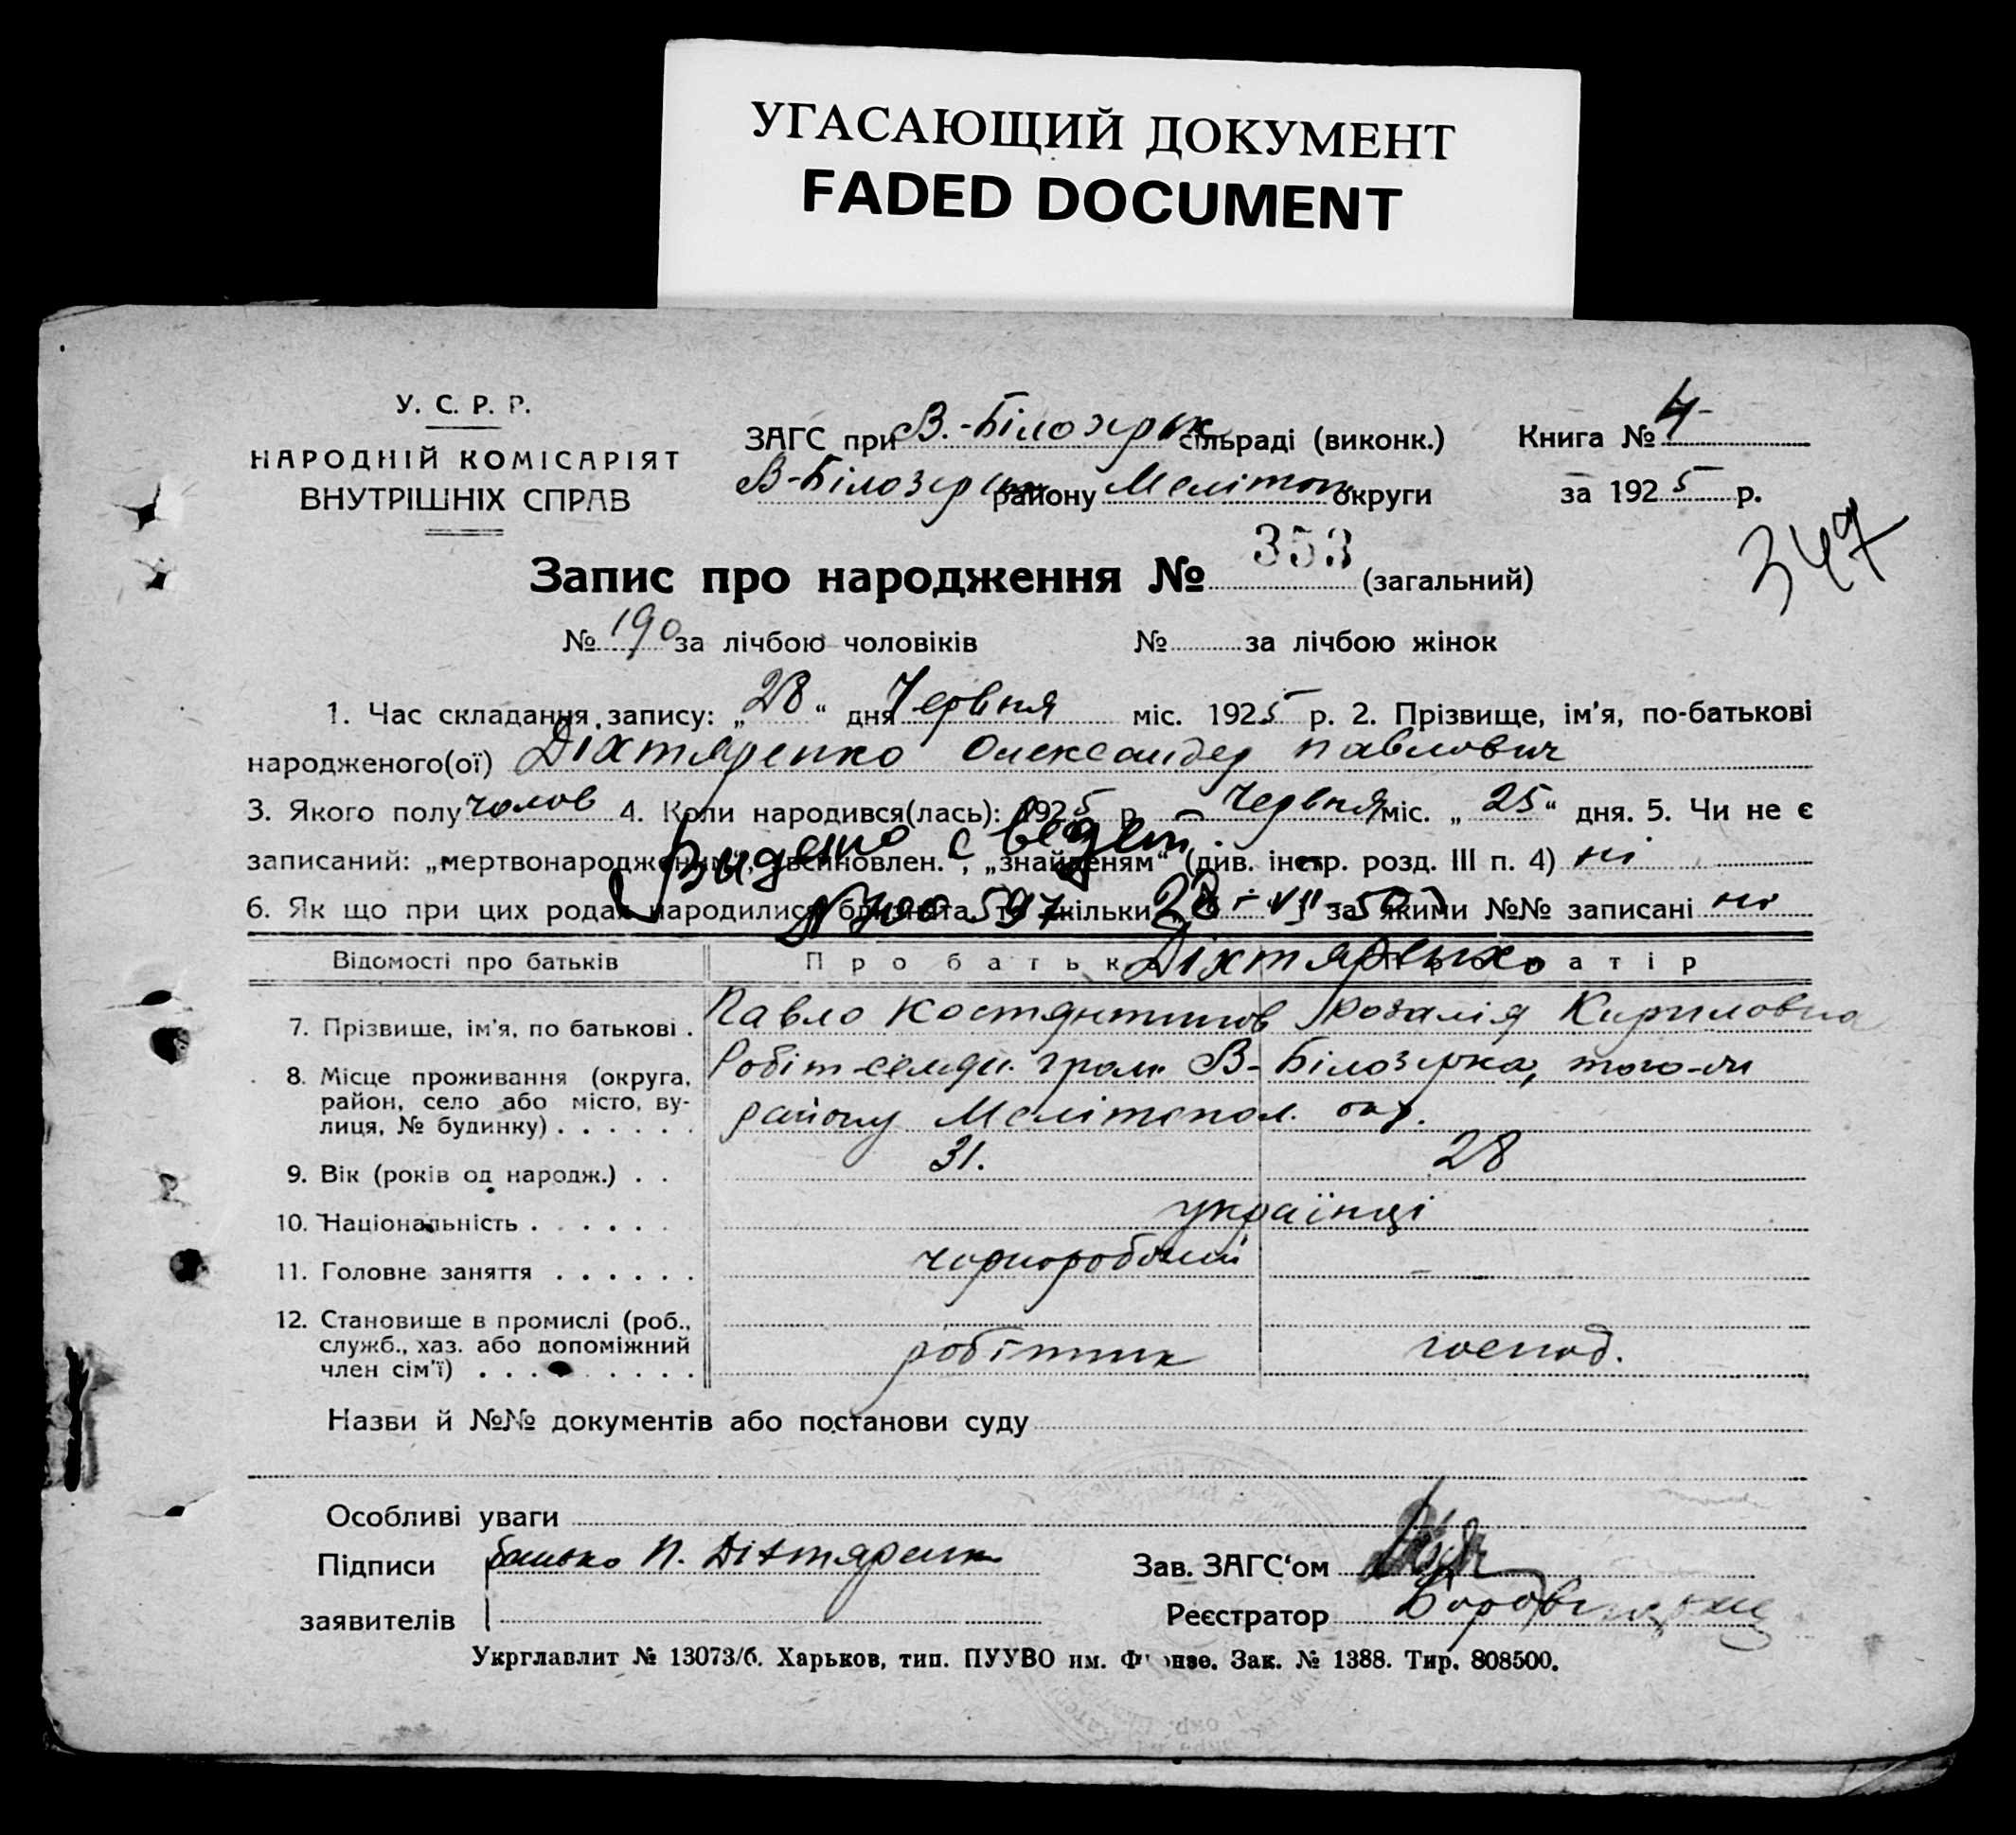 УГАСАЮЩИЙ ДОКУМЕНТ
FADED DOCUMENT
У. С. Р. Р.
НАРОДНІЙ КОМІСАРІЯТ
ВНУТРІШНІХ СПРАВ
ЗАГС при В.-Білозірк сільраді (виконк.)
Книга № 4
В-Білозірськ району Мелітоп округи
за 1925 р.
347
Запис про народження № 353 (загальний)
№ 190 за лічбою чоловіків № за лічбою жінок
1. Час складання запису: „28“ дня Червня міс. 1925 р. 2. Прізвище, ім’я, по-батькові
народженого(ої) Діхтяренко Олександер Павлович
3. Якого полу чолов 4. Коли народився(лась): 1925 р. Червня міс. „25“ дня. 5. Чи не є
Видано свідет
записаний: „мертвонародженим“, „всиновлен.“, „знайденям“ (див. інстр. розд. III п. 4) ні
6. Як що при цих родах народилися близнята, то скільки за якими №№ записані ні
597 28-VII-50
Відомості про батьків Про батька Про матір
Діхтяренко
7. Прізвище, ім’я, по батькові . Павло Костянтинов Розалія Кириловна
8. Місце проживання (округа, Робіт-селян. грам. В-Білозірка, того-ж
район, село або місто, ву-
лиця, № будинку) . . . . . . району Мелітопол. окр.
9. Вік (років од народж.) . . 31. 28
10. Національність . . . . . . українці
11. Головне заняття . . . . . . чорноробочий –
12. Становище в промислі (роб.,
служб., хаз. або допоміжний робітник господ.
член сім’ї) . . . . . . . . .
Назви й №№ документів або постанови суду
Особливі уваги
Підписи батько П. Діхтяренк Зав. ЗАГС‘ом
заявителів Реєстратор
Укрглавлит № 13073/б. Харьков, тип. ПУУВО им. Фрунзе. Зак. № 1388. Тир. 808500.